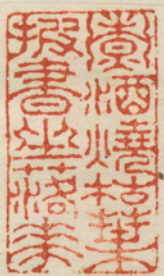 嘗酒燒枯葉
披書坐落花